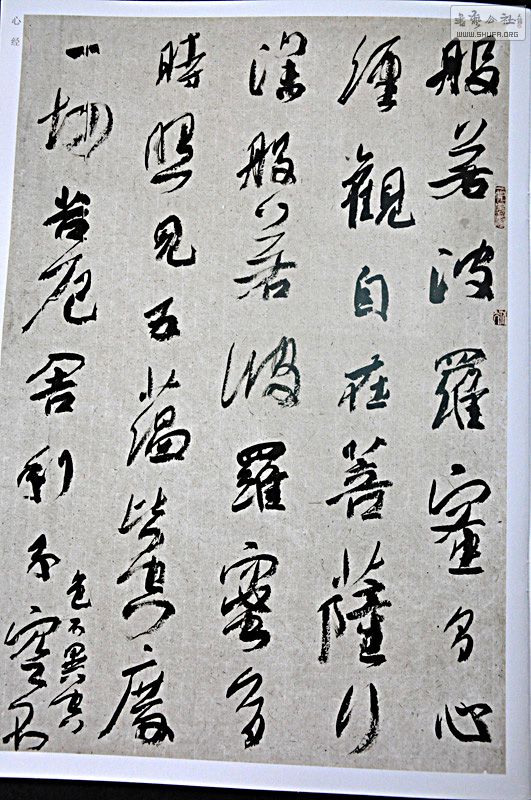 般若波羅蜜多心
經觀自在菩薩行
深般若波羅蜜多
時照見五蘊皆空度
一切苦厄舍利子
色不異空
空不
心经
公社
WWW.SHUFA.ORG